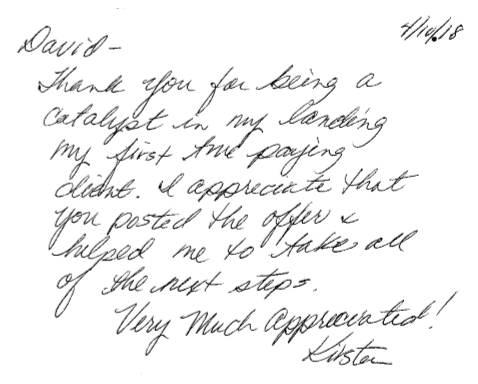 4/10.18
David -
Thank you for being a
catalyst in my landing
my first true paying
client. I appreciate that
you posted the offer &
helped me to take all
of the next steps.
Very Much Appreciated!
Kirsten